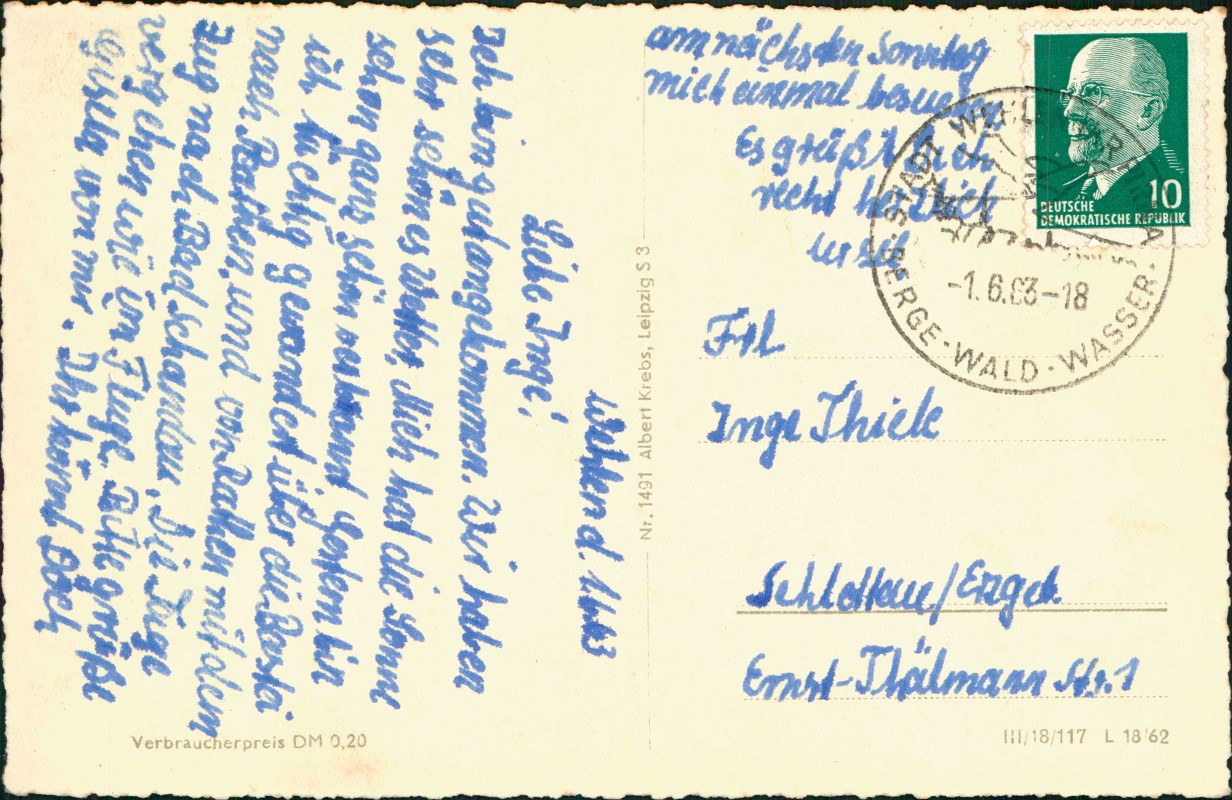 Wehlen d. 1.6.63
Liebe Inge!
Ich bin gut angekommen. Wir haben
sehr schönes Wetter, Mich hat die Sonne
schon ganz schön verbrannt. Gestern bin
ich tüchtig gewandert über die Bastei
nach Rathen, und von Rathen mit dem
Zug nach Bad Schandau. Die Tage
vergehen wie im Fluge. Bitte grüße
von mir. Ihr könnt Doch
am nächsden Sonntag
mich einmal besuchen
Es grüßt Dich
recht herzlich
Frl.
Inge Thiele
Schlettau/Erzgeb.
Ernst-Thälmann Str. 1
DEUTSCHE
DEMOKRATISCHE REPUBLIK
10
STADT WEHLEN
-1.6.63-18
BERGE · WALD · WASSER ·
Nr. 1491 Albert Krebs, Leipzig S 3
Verbraucherpreis DM 0,20
III/18/117 L 18/62